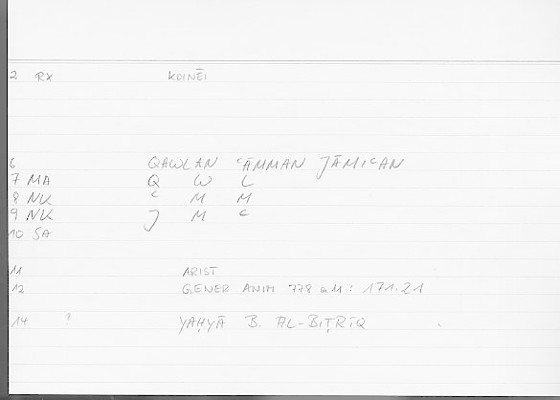 2 RX KOINĒI
6 QAWLAN ʿĀMMAN JĀMIʿAN
7 MA Q W L
8 NK ʿ M M
9 NK J M ʿ
10 SA
11 ARIST
12 GENER ANIM 778 a11: 171.21
14 ? YAḤYĀ B. AL-BIṬRĪQ